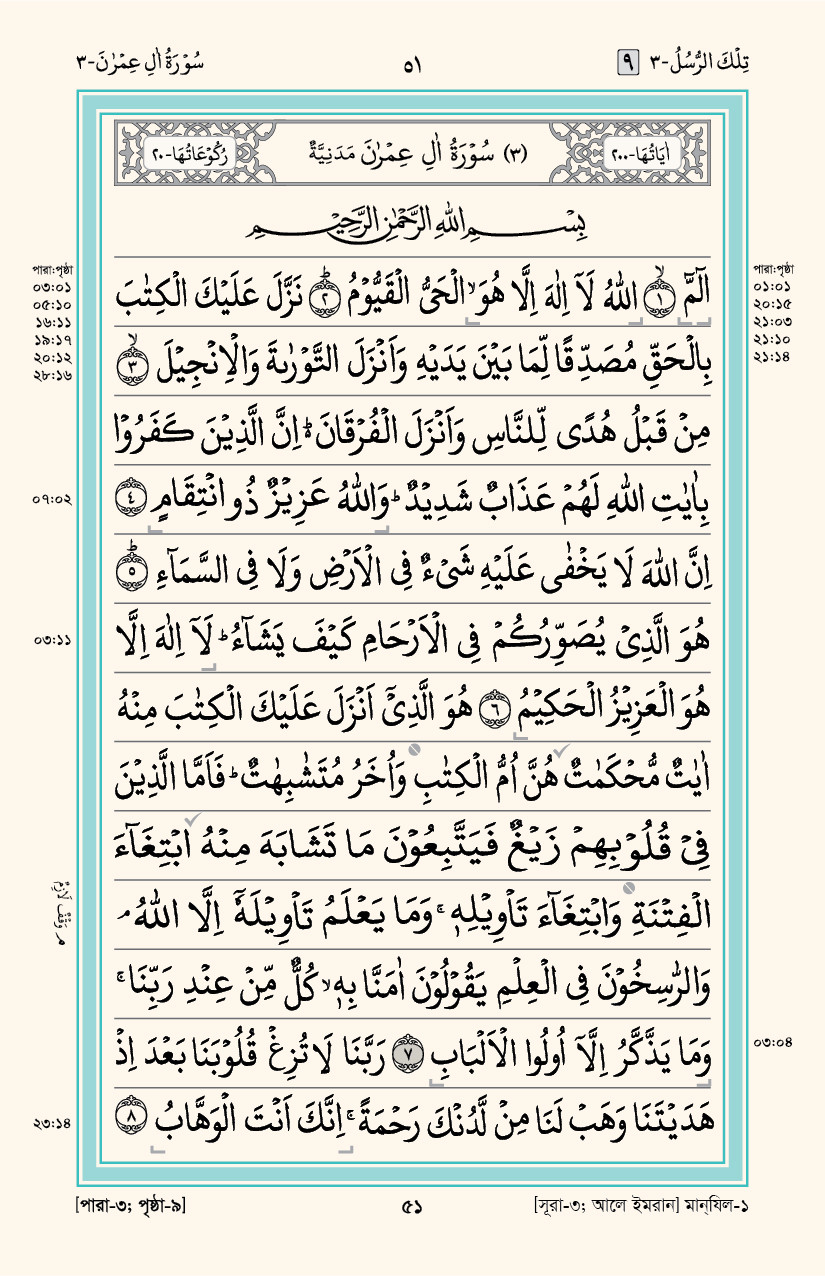 تِلۡكَ الرُّسُلُ-٣ ٩
٥١
سُوۡرَةُ اٰلِ عِمۡرٰنَ-٣
اٰيَاتُهَا-٢٠٠
(٣) سُوۡرَةُ اٰلِ عِمۡرٰنَ مَدَنِيَّةٌ
رُكُوۡعَاتُهَا-٢٠
بِسۡمِ اللهِ الرَّحۡمٰنِ الرَّحِيۡمِ
الٓمّٓ ۙ‏﴿١﴾ اللهُ لَاۤ اِلٰهَ اِلَّا هُوَ ۙ الۡحَىُّ الۡقَيُّوۡمُ ؕ‏﴿٢﴾ نَزَّلَ عَلَيۡكَ الۡكِتٰبَ
بِالۡحَقِّ مُصَدِّقًا لِّمَا بَيۡنَ يَدَيۡهِ وَاَنۡزَلَ التَّوۡرٰٮةَ وَالۡاِنۡجِيۡلَ ۙ‏﴿٣﴾
مِنۡ قَبۡلُ هُدًى لِّلنَّاسِ وَاَنۡزَلَ الۡفُرۡقَانَ ؕ اِنَّ الَّذِيۡنَ كَفَرُوۡا
بِاٰيٰتِ اللهِ لَهُمۡ عَذَابٌ شَدِيۡدٌ ؕ وَاللهُ عَزِيۡزٌ ذُو انۡتِقَامٍ ‏﴿٤﴾
اِنَّ اللهَ لَا يَخۡفٰى عَلَيۡهِ شَىۡءٌ فِى الۡاَرۡضِ وَلَا فِى السَّمَآءِ ؕ‏﴿٥﴾
هُوَ الَّذِىۡ يُصَوِّرُكُمۡ فِى الۡاَرۡحَامِ كَيۡفَ يَشَآءُ ؕ لَاۤ اِلٰهَ اِلَّا
هُوَ الۡعَزِيۡزُ الۡحَكِيۡمُ ‏﴿٦﴾ هُوَ الَّذِىۡۤ اَنۡزَلَ عَلَيۡكَ الۡكِتٰبَ مِنۡهُ
اٰيٰتٌ مُّحۡكَمٰتٌ هُنَّ اُمُّ الۡكِتٰبِ وَاُخَرُ مُتَشٰبِهٰتٌ ؕ فَاَمَّا الَّذِيۡنَ
فِىۡ قُلُوۡبِهِمۡ زَيۡغٌ فَيَتَّبِعُوۡنَ مَا تَشَابَهَ مِنۡهُ ابۡتِغَآءَ
الۡفِتۡنَةِ وَابۡتِغَآءَ تَاۡوِيۡلِهٖ ۚ وَمَا يَعۡلَمُ تَاۡوِيۡلَهٗۤ اِلَّا اللهُ ۘ
وَالرّٰسِخُوۡنَ فِى الۡعِلۡمِ يَقُوۡلُوۡنَ اٰمَنَّا بِهٖ ۙ كُلٌّ مِّنۡ عِنۡدِ رَبِّنَا ۚ
وَمَا يَذَّكَّرُ اِلَّاۤ اُولُوا الۡاَلۡبَابِ ‏﴿٧﴾ رَبَّنَا لَا تُزِغۡ قُلُوۡبَنَا بَعۡدَ اِذۡ
هَدَيۡتَنَا وَهَبۡ لَنَا مِنۡ لَّدُنۡكَ رَحۡمَةً ۚ اِنَّكَ اَنۡتَ الۡوَهَّابُ ‏﴿٨﴾
পারা:পৃষ্ঠা
০১:০১
২০:১৫
২১:০৩
২১:১০
২১:১৪
০৩:০৪
পারা:পৃষ্ঠা
০৩:০১
০৫:১০
১৬:১১
১৯:১৭
২০:১২
২৮:১৬
০৭:০২
০৩:১১
مـ وَقۡفٌ لَازِمٌ
২৩:১৪
[পারা-৩; পৃষ্ঠা-৯]
৫১
[সূরা-৩; আলে ইমরান] মান্‌যিল-১